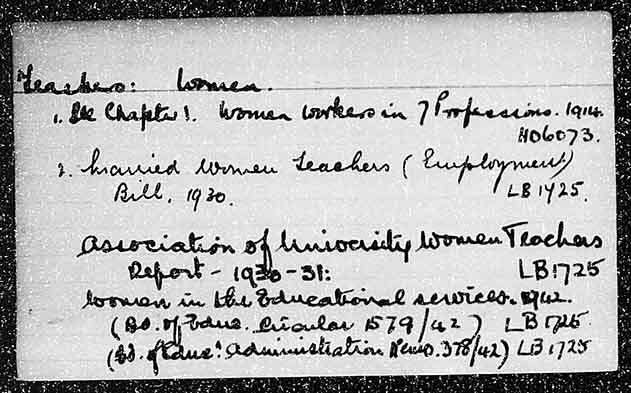 Teachers: Women.
1. See Chapter 1. Women workers in 7 Professions. 1914.
HD6073.
2. Married Women Teachers (Employment)
Bill, 1930. LB1725.
Association of University Women Teachers
Report - 1930-31: LB1725
Women in the Educational services. 1942.
(Bd. of Educ. Circular 1579/42) LB1725.
(Bd. of Educ: Administration Memo. 378/42) LB1725